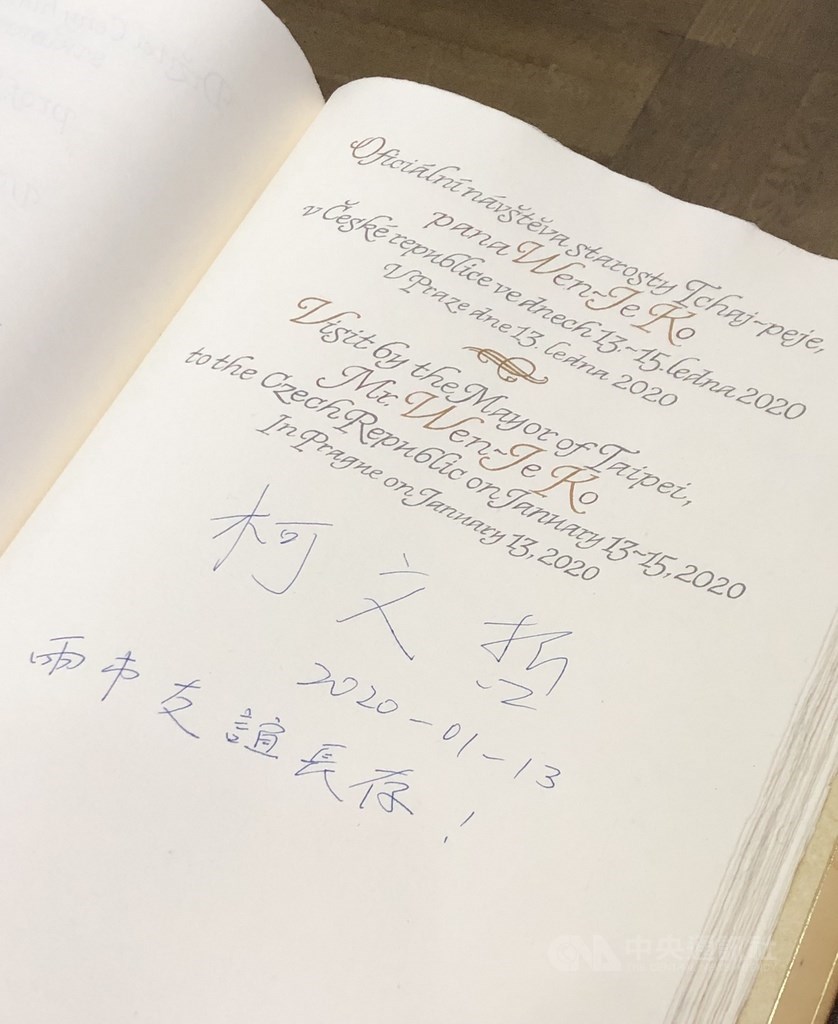 Oficiální návštěva starosty Tchaj-peje,
pana Wen-Je Ko
v České republice ve dnech 13.-15. ledna 2020
V Praze dne 13. ledna 2020
Visit by the Mayor of Taipei,
Mr. Wen-Je Ko
to the Czech Republic on January 13-15, 2020
In Prague on January 13, 2020
柯文哲
2020-01-13
兩市友誼長存!
CNA 中央通訊社